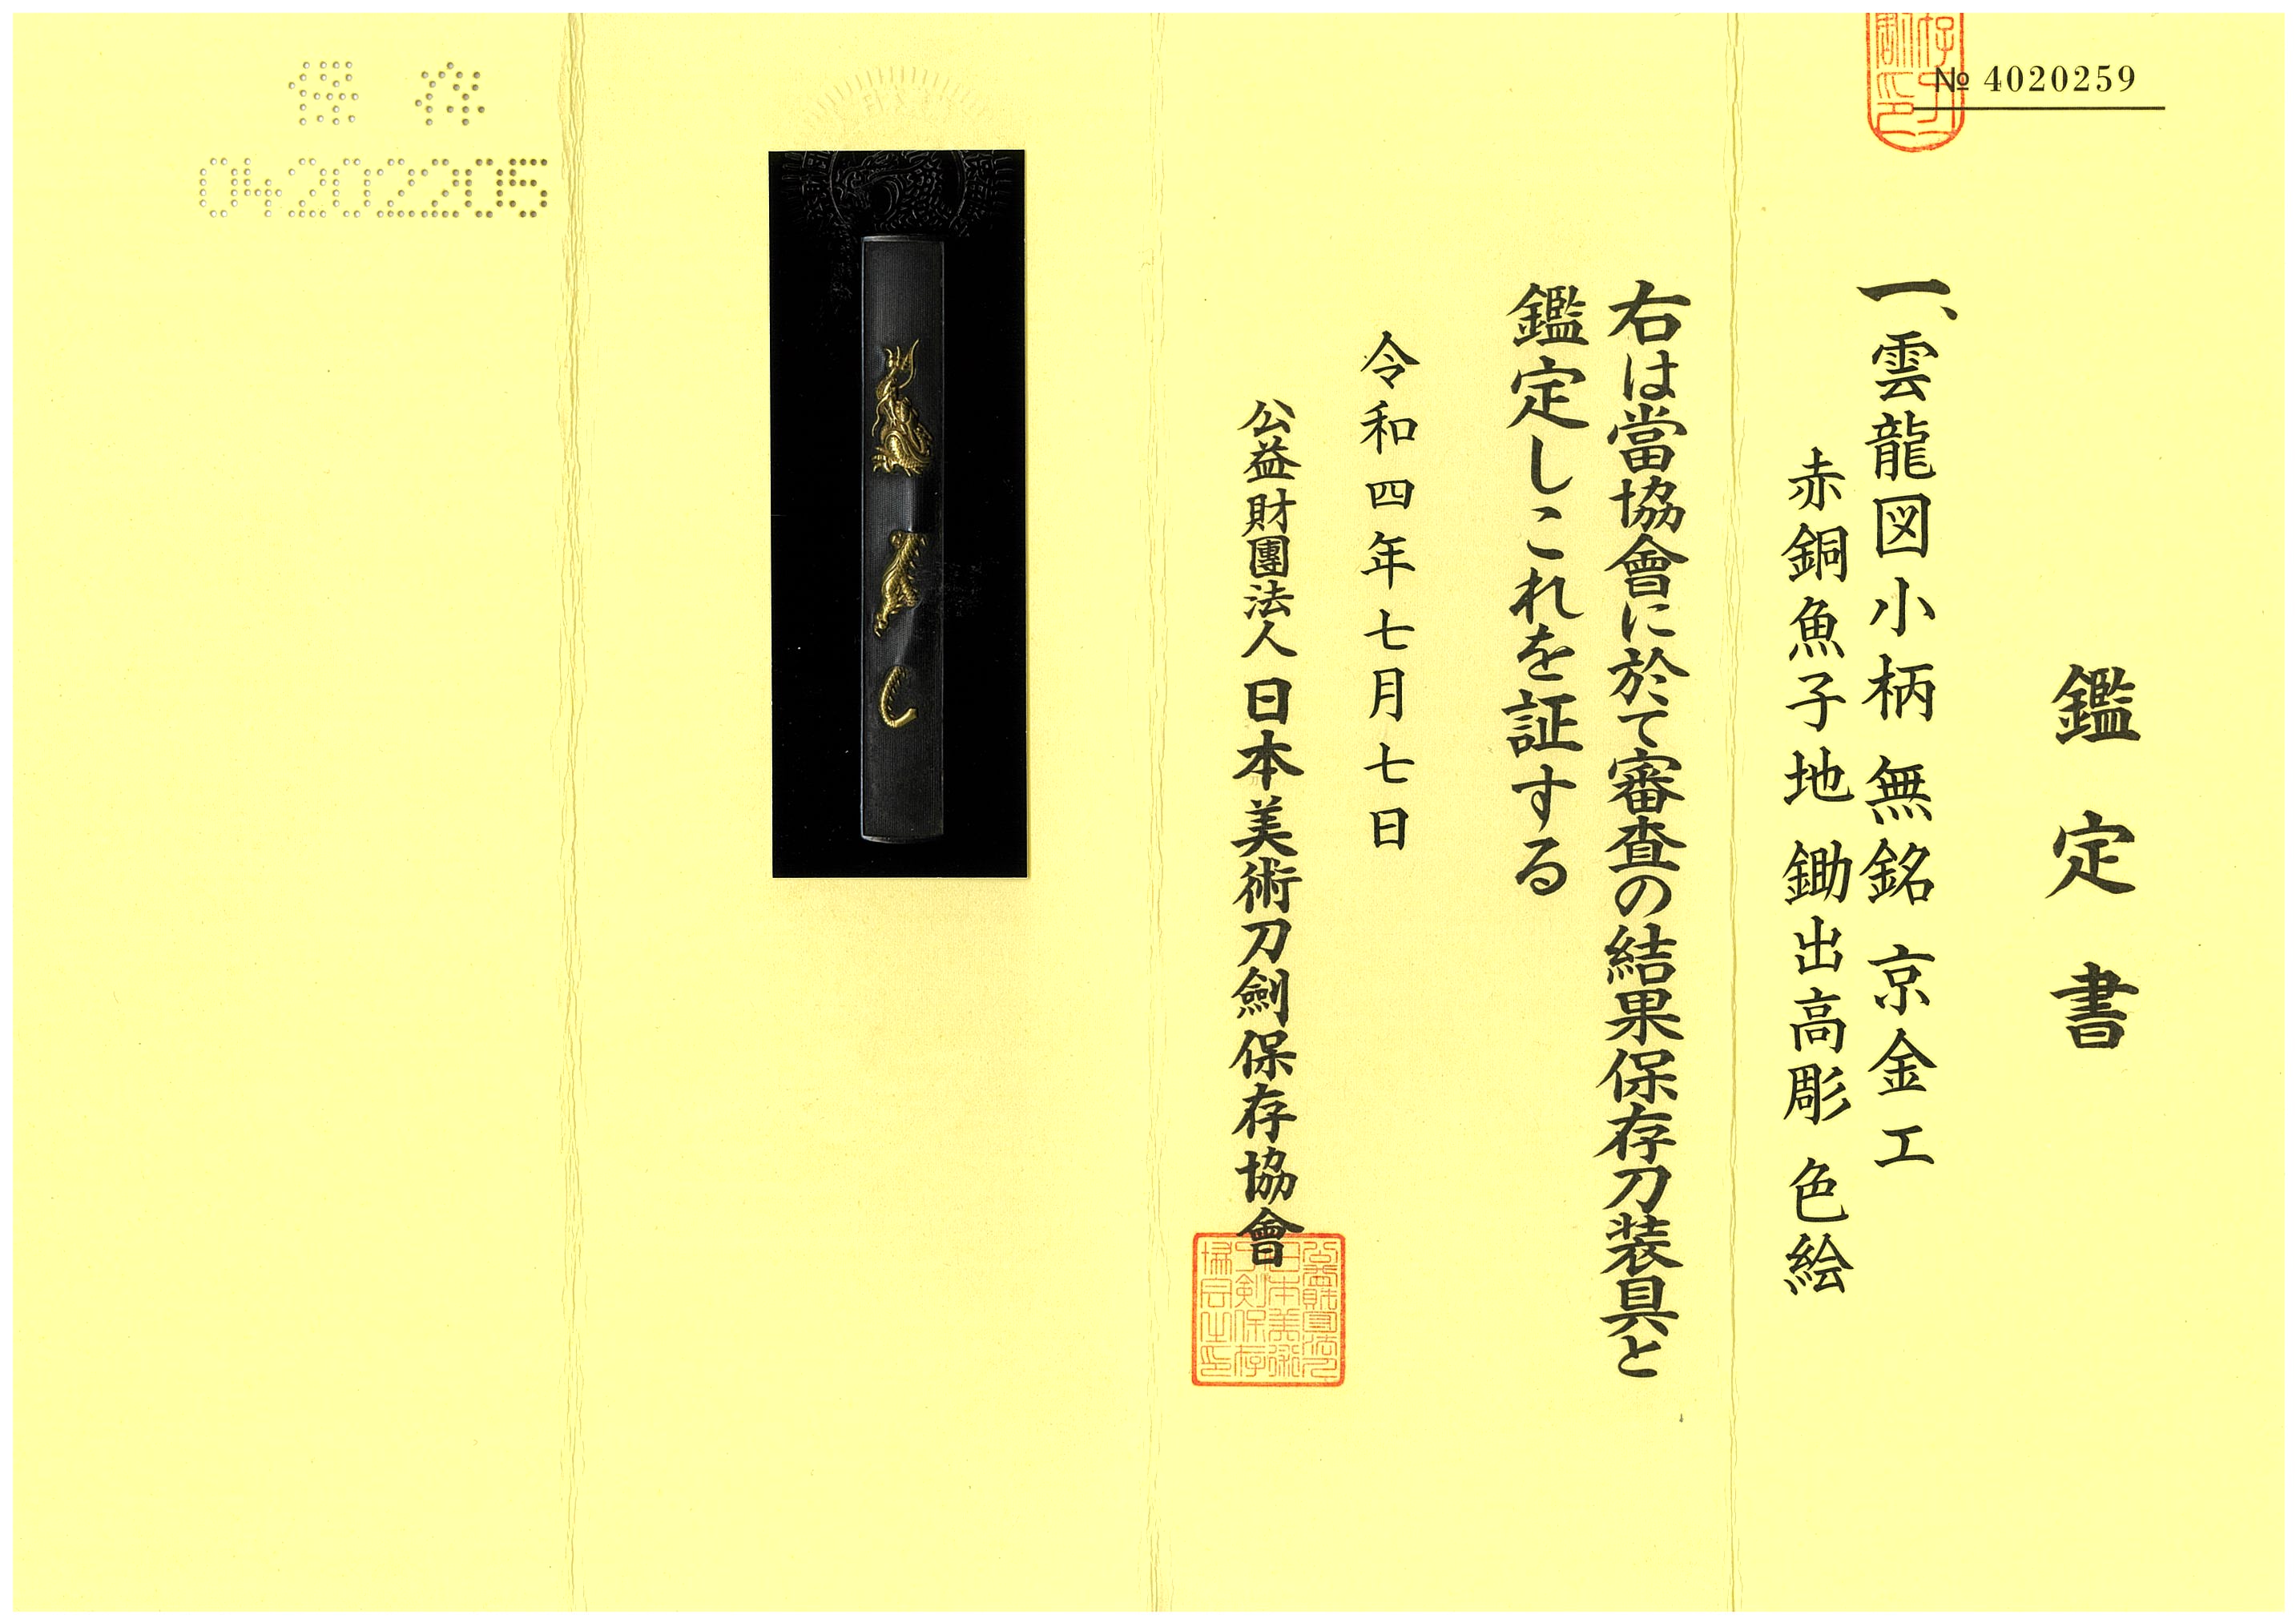 № 4020259
鑑定書
一、雲龍図小柄 無銘 京金工
赤銅魚子地 鋤出高彫 色絵
右は當協會に於て審査の結果保存刀装具と
鑑定しこれを証する
令和四年七月七日
公益財團法人 日本美術刀劍保存協會
保存
04202205